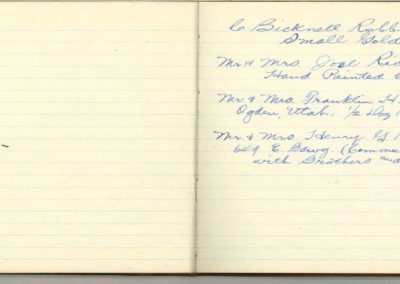 C Bicknell Robb
Small Gold
Mr. & Mrs. Joel Ric
Hand Painted
Mr. & Mrs. Franklin H.
Ogden, Utah. 1/2 Doz
Mr. & Mrs. Henry G.
649 E. (Commu
with Brothers and